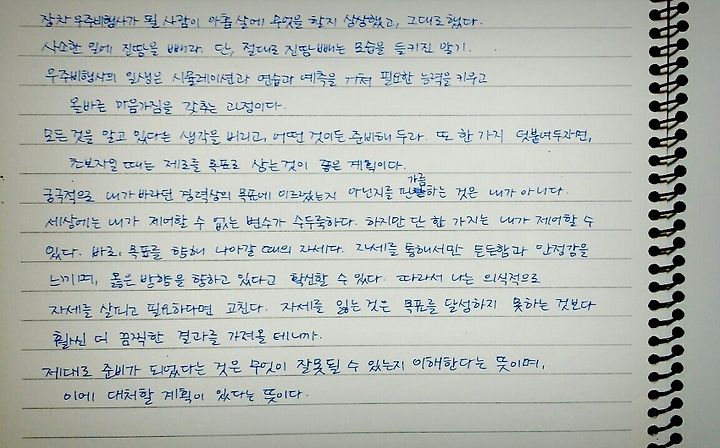 장차 우주비행사가 될 사람이 아홉 살에 무엇을 할지 상상했고, 그대로 했다.
사소한 일에 진땀을 빼라. 단, 절대로 진땀 빼는 모습을 들키진 말기.
우주비행사의 일생은 시뮬레이션과 연습과 예측을 거쳐 필요한 능력을 키우고
올바른 마음가짐을 갖추는 과정이다.
모든 것을 알고 있다는 생각을 버리고, 어떤 것이든 준비해 두라. 또 한 가지 덧붙여두자면,
초보자일 때는 제로를 목표로 삼는 것이 좋은 계획이다.
궁극적으로 내가 바라던 경력상의 목표에 이르렀는지 아닌지를 판가름하는 것은 내가 아니다.
세상에는 내가 제어할 수 없는 변수가 수두룩하다. 하지만 단 한 가지는 내가 제어할 수
있다. 바로, 목표를 향해 나아갈 때의 자세다. 자세를 통해서만 든든함과 안정감을
느끼며, 옳은 방향을 향하고 있다고 확신할 수 있다. 따라서 나는 의식적으로
자세를 살피고 필요하다면 고친다. 자세를 잃는 것은 목표를 달성하지 못하는 것보다
훨씬 더 끔찍한 결과를 가져올 테니까.
제대로 준비가 되었다는 것은 무엇이 잘못될 수 있는지 이해한다는 뜻이며,
이에 대처할 계획이 있다는 뜻이다.